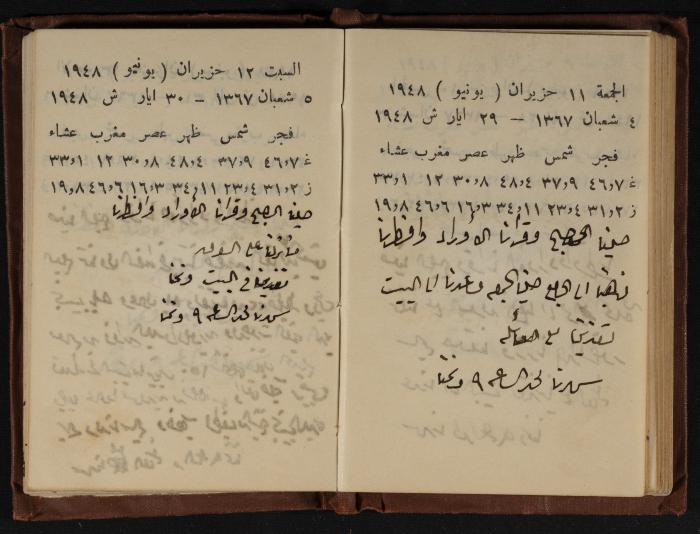 الجمعة ١١ حزيران ( يونيو ) ١٩٤٨
٤ شعبان ١٣٦٧ – ٢٩ ايار ش ١٩٤٨
فجر شمس ظهر عصر مغرب عشاء
غ ٤٦٫٧ ٣٧٫٩ ٤٨٫٤ ٣٠٫٨ ١٢ ٣٣٫١
ز ٣١٫٢ ٢٣٫٤ ٣٤٫١١ ١٦٫٣ ٤٦٫٦ ١٩٫٨
صلينا الصبح وقرأنا الأوراد وافطرنا
ذهبنا الى الجامع صلينا الجمعه وعدنا الى البيت
تغدينا مع العائله
سهرنا لحد الساعه ٩ ونمنا
السبت ١٢ حزيران ( يونيو ) ١٩٤٨
٥ شعبان ١٣٦٧ – ٣٠ ايار ش ١٩٤٨
فجر شمس ظهر عصر مغرب عشاء
غ ٤٦٫٧ ٣٧٫٩ ٤٨٫٤ ٣٠٫٨ ١٢ ٣٣٫١
ز ٣١٫٢ ٢٣٫٤ ٣٤٫١١ ١٦٫٣ ٤٦٫٦ ١٩٫٨
صلينا الصبح وقرأنا الأوراد وافطرنا
على
تغدينا في البيت ونمنا
سهرنا لحد الساعه ٩ ونمنا